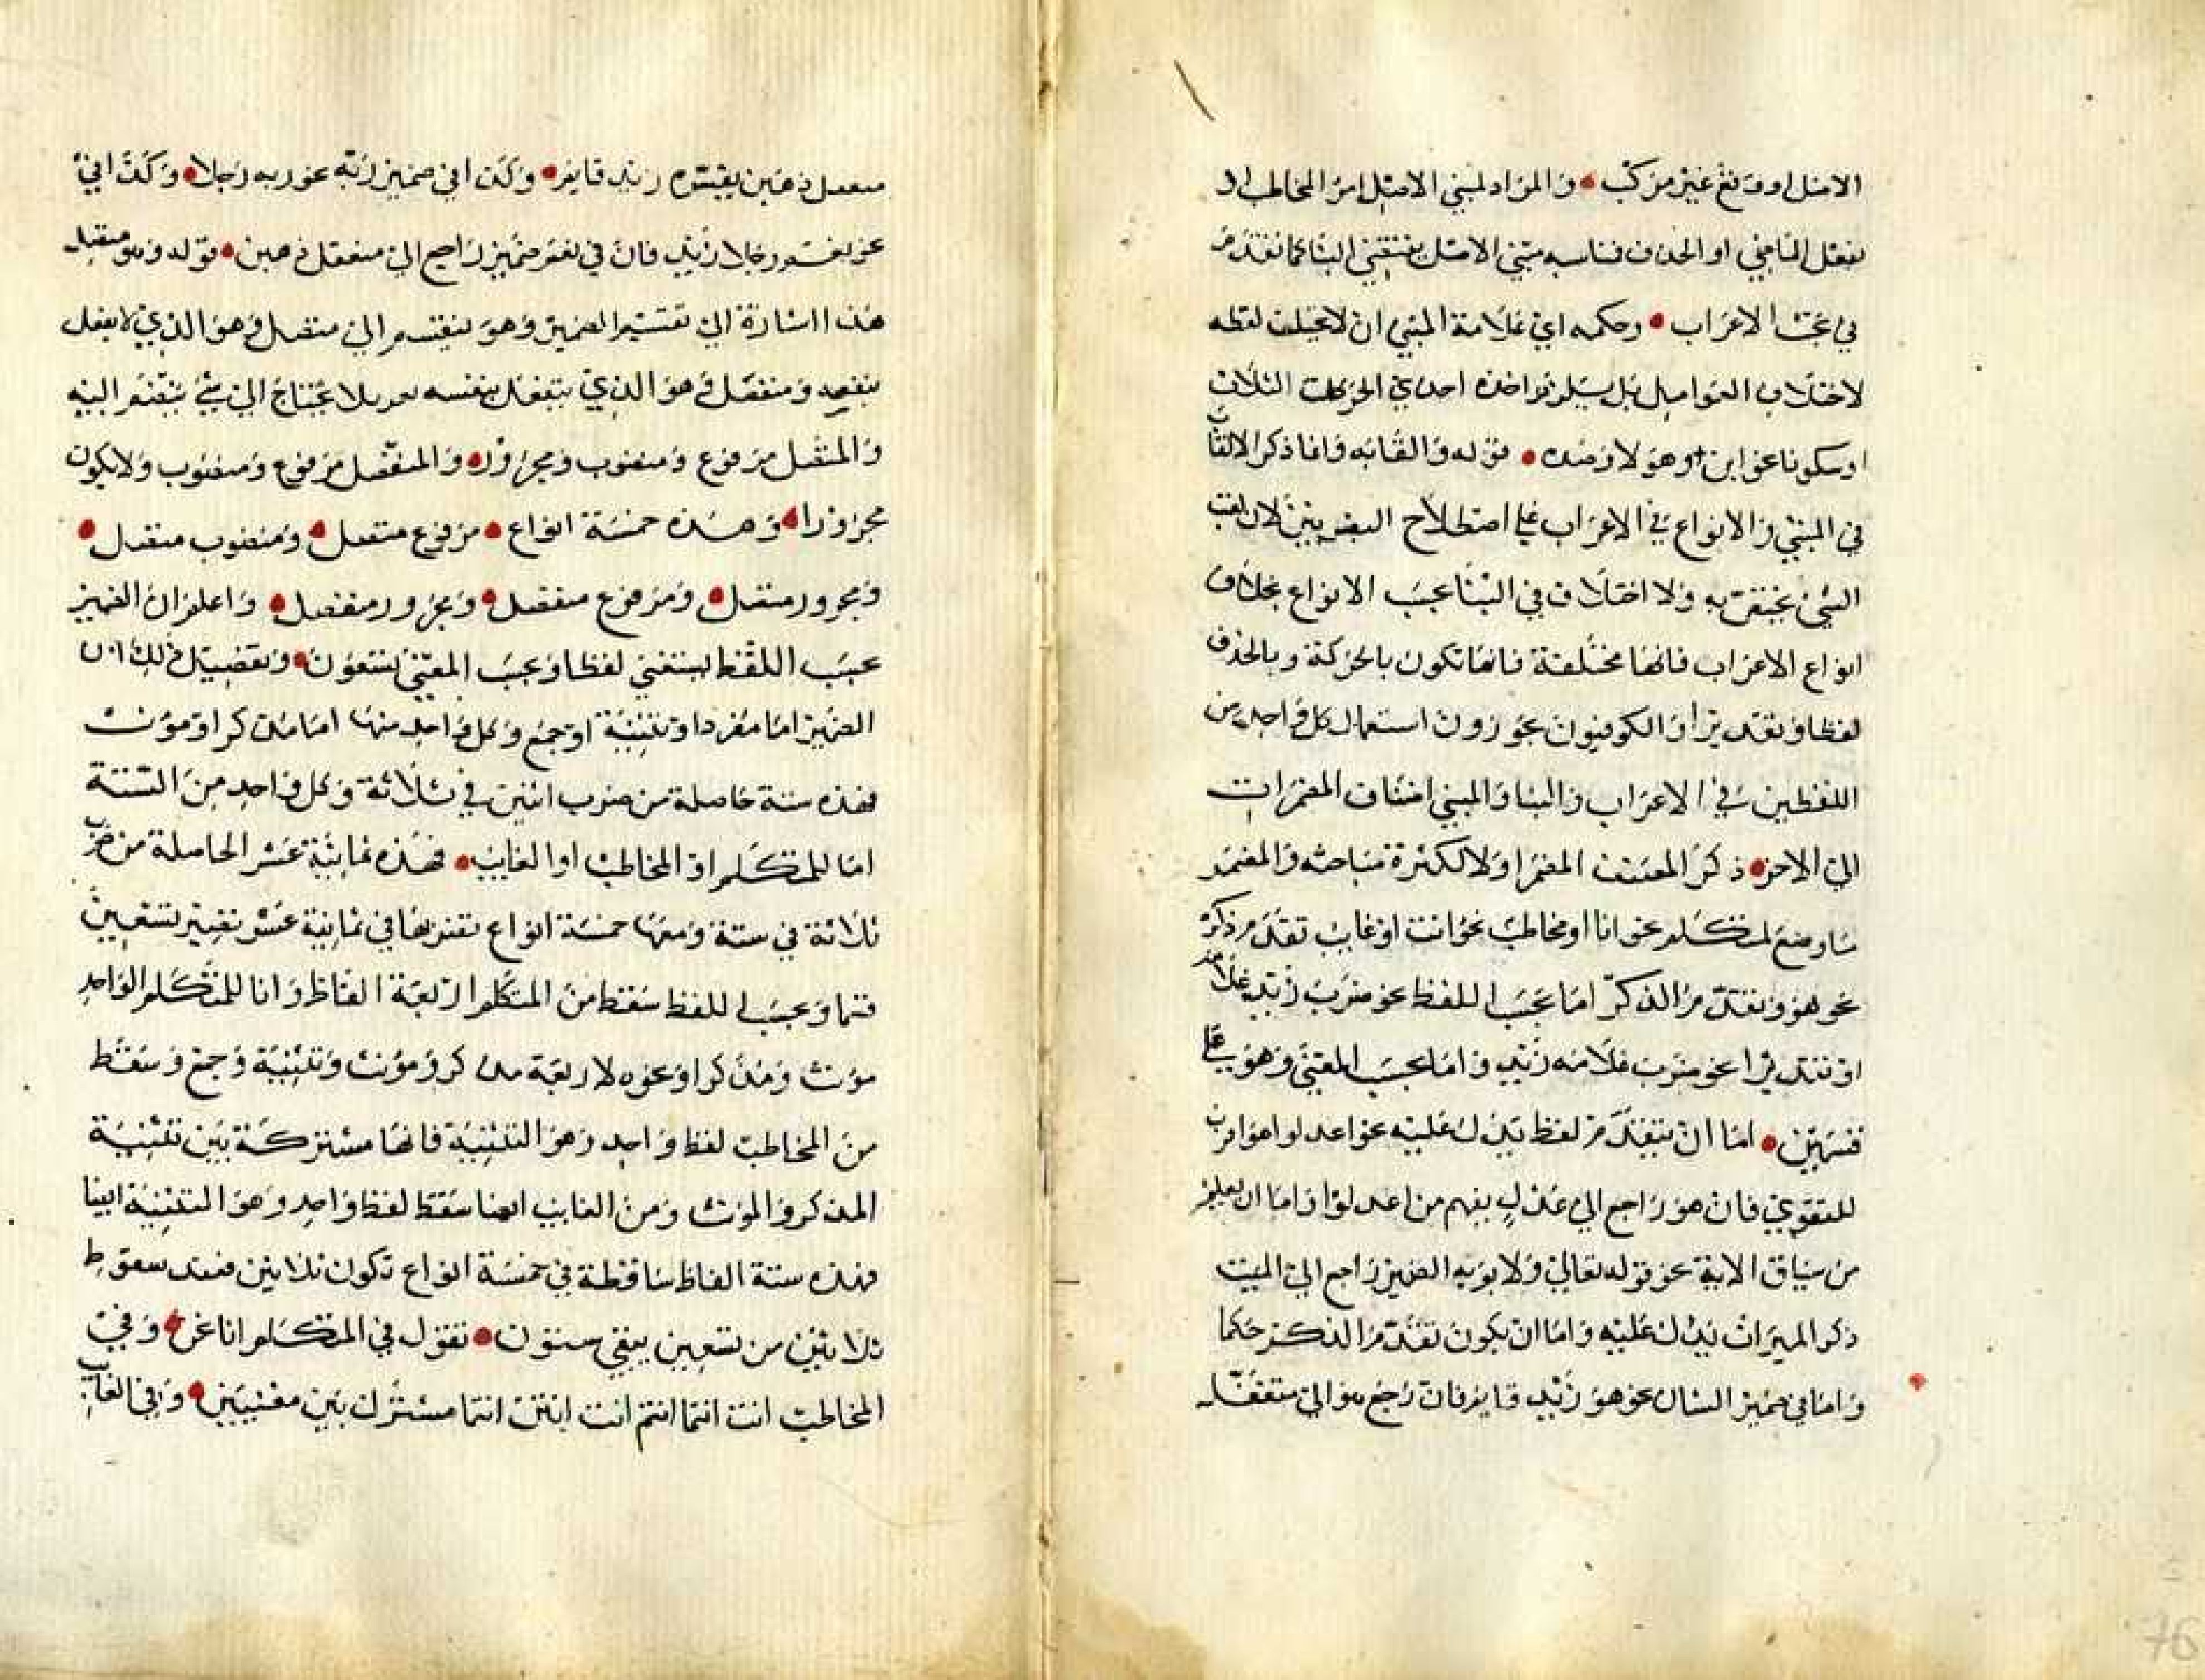 الاصل او وقع غير مركب • والمراد لمبني الاصل امر المخاطب او
بفعل الماضي او الحرف فناسبه مبني الاصل يقتضي البنا كما تقدم
في بحث الاعراب • وحكمه اي علامة المبني ان لا يختلف لفظه
لاختلاف العوامل بل يلزم واحدة احدي الحركات الثلاث
او سكونا نحو اين وهؤلاء ومنذ • قوله والقابه وانما ذكر الالقاب
في المبني والانواع في الاعراب علي اصطلاح البصريين لان لقب
الشي يختص به ولا اختلاف في البنا بحسب الانواع بخلاف
انواع الاعراب فانها مختلفة فانها تكون بالحركة وبالحذف
لفظا وتقديرا والكوفيون يجوزون استعمال كل واحد من
اللفظين في الاعراب والبنا والمبني اصناف المضمرات
الي الاخر • ذكر المصنف المضمر اولا لكثرة مباحثه والمضمر
ما وضع لمتكلم نحو انا او مخاطب نحو انت او غايب تقدم ذكره
نحو هو وتقدم الذكر اما بحسب اللفظ نحو ضرب زيد غلامه
او تقديرا نحو ضرب غلامه زيد واما بحسب المعني وهو علي
قسمين • اما ان يتقدم لفظ يدل عليه نحو اعدلوا هو اقرب
للتقوي فان هو راجع الي عدل يفهم من اعدلوا واما ان يعلم
من سياق الاية نحو قوله تعالي ولابويه الضمير راجع الي الميت
ذكر الميراث يدل عليه واما ان يكون تقدم الذكر حكما
واما في ضمير الشان نحو هو زيد قايم فان رجع هو الي متعقل
متعقل ذهين يفسره زيد قايم • وكذا في ضمير ربه نحو ربه رجلا • وكذا في
نحو نعم رجلا زيد فان في نعم ضمير راجع الي متعقل ذهين • قوله وهو متصل
هذا اشارة الي تقسيم الضمير وهو ينقسم الي متصل وهو الذي لا
بنفسه ومنفصل وهو الذي بنفسه بلا يحتاج الي شي ينضم اليه
والمتصل مرفوع ومنصوب ومجرور • والمنفصل مرفوع ومنصوب ولا يكون
مجرورا • وهذه خمسة انواع • مرفوع متصل • ومنصوب متصل •
ومجرور متصل • ومرفوع منفصل • ومجرور منفصل • واعلم ان الضمير
بحسب اللفظ ستين لفظا وبحسب المعني تسعون • وتفصيل ذلك ان
الضمير اما مفرد او تثنية او جمع وكل واحد منها اما مذكر او مونث
فهذه ستة حاصلة من ضرب اثنين في ثلاثة وكل واحد من الستة
اما للمتكلم او المخاطب او الغايب • فهذه ثمانية عشر الحاصلة من ضرب
ثلاثة في ستة ومعها خمسة انواع تضربها في ثمانية عشر تصير تسعين
وبحسب اللفظ سقط من المتكلم اربعة الفاظ وانا للمتكلم الواحد
مونث ومذكر ونحوه لاربعة مذكر ومونث وتثنية وجمع وسقط
من المخاطب لفظ واحد وهو التثنية فانها مشتركة بين تثنية
المذكر والمونث ومن الغايب ايضا سقط لفظ واحد وهو التثنية ايضا
فهذه ستة الفاظ ساقطة في خمسة انواع تكون ثلاثين فبعد سقوط
ثلاثين من تسعين يبقي ستون • تقول في المتكلم انا نحن • وفي
المخاطب انت انتما انتم انت انتن انتما مشترك بين معنيين • وفي الغايب
76